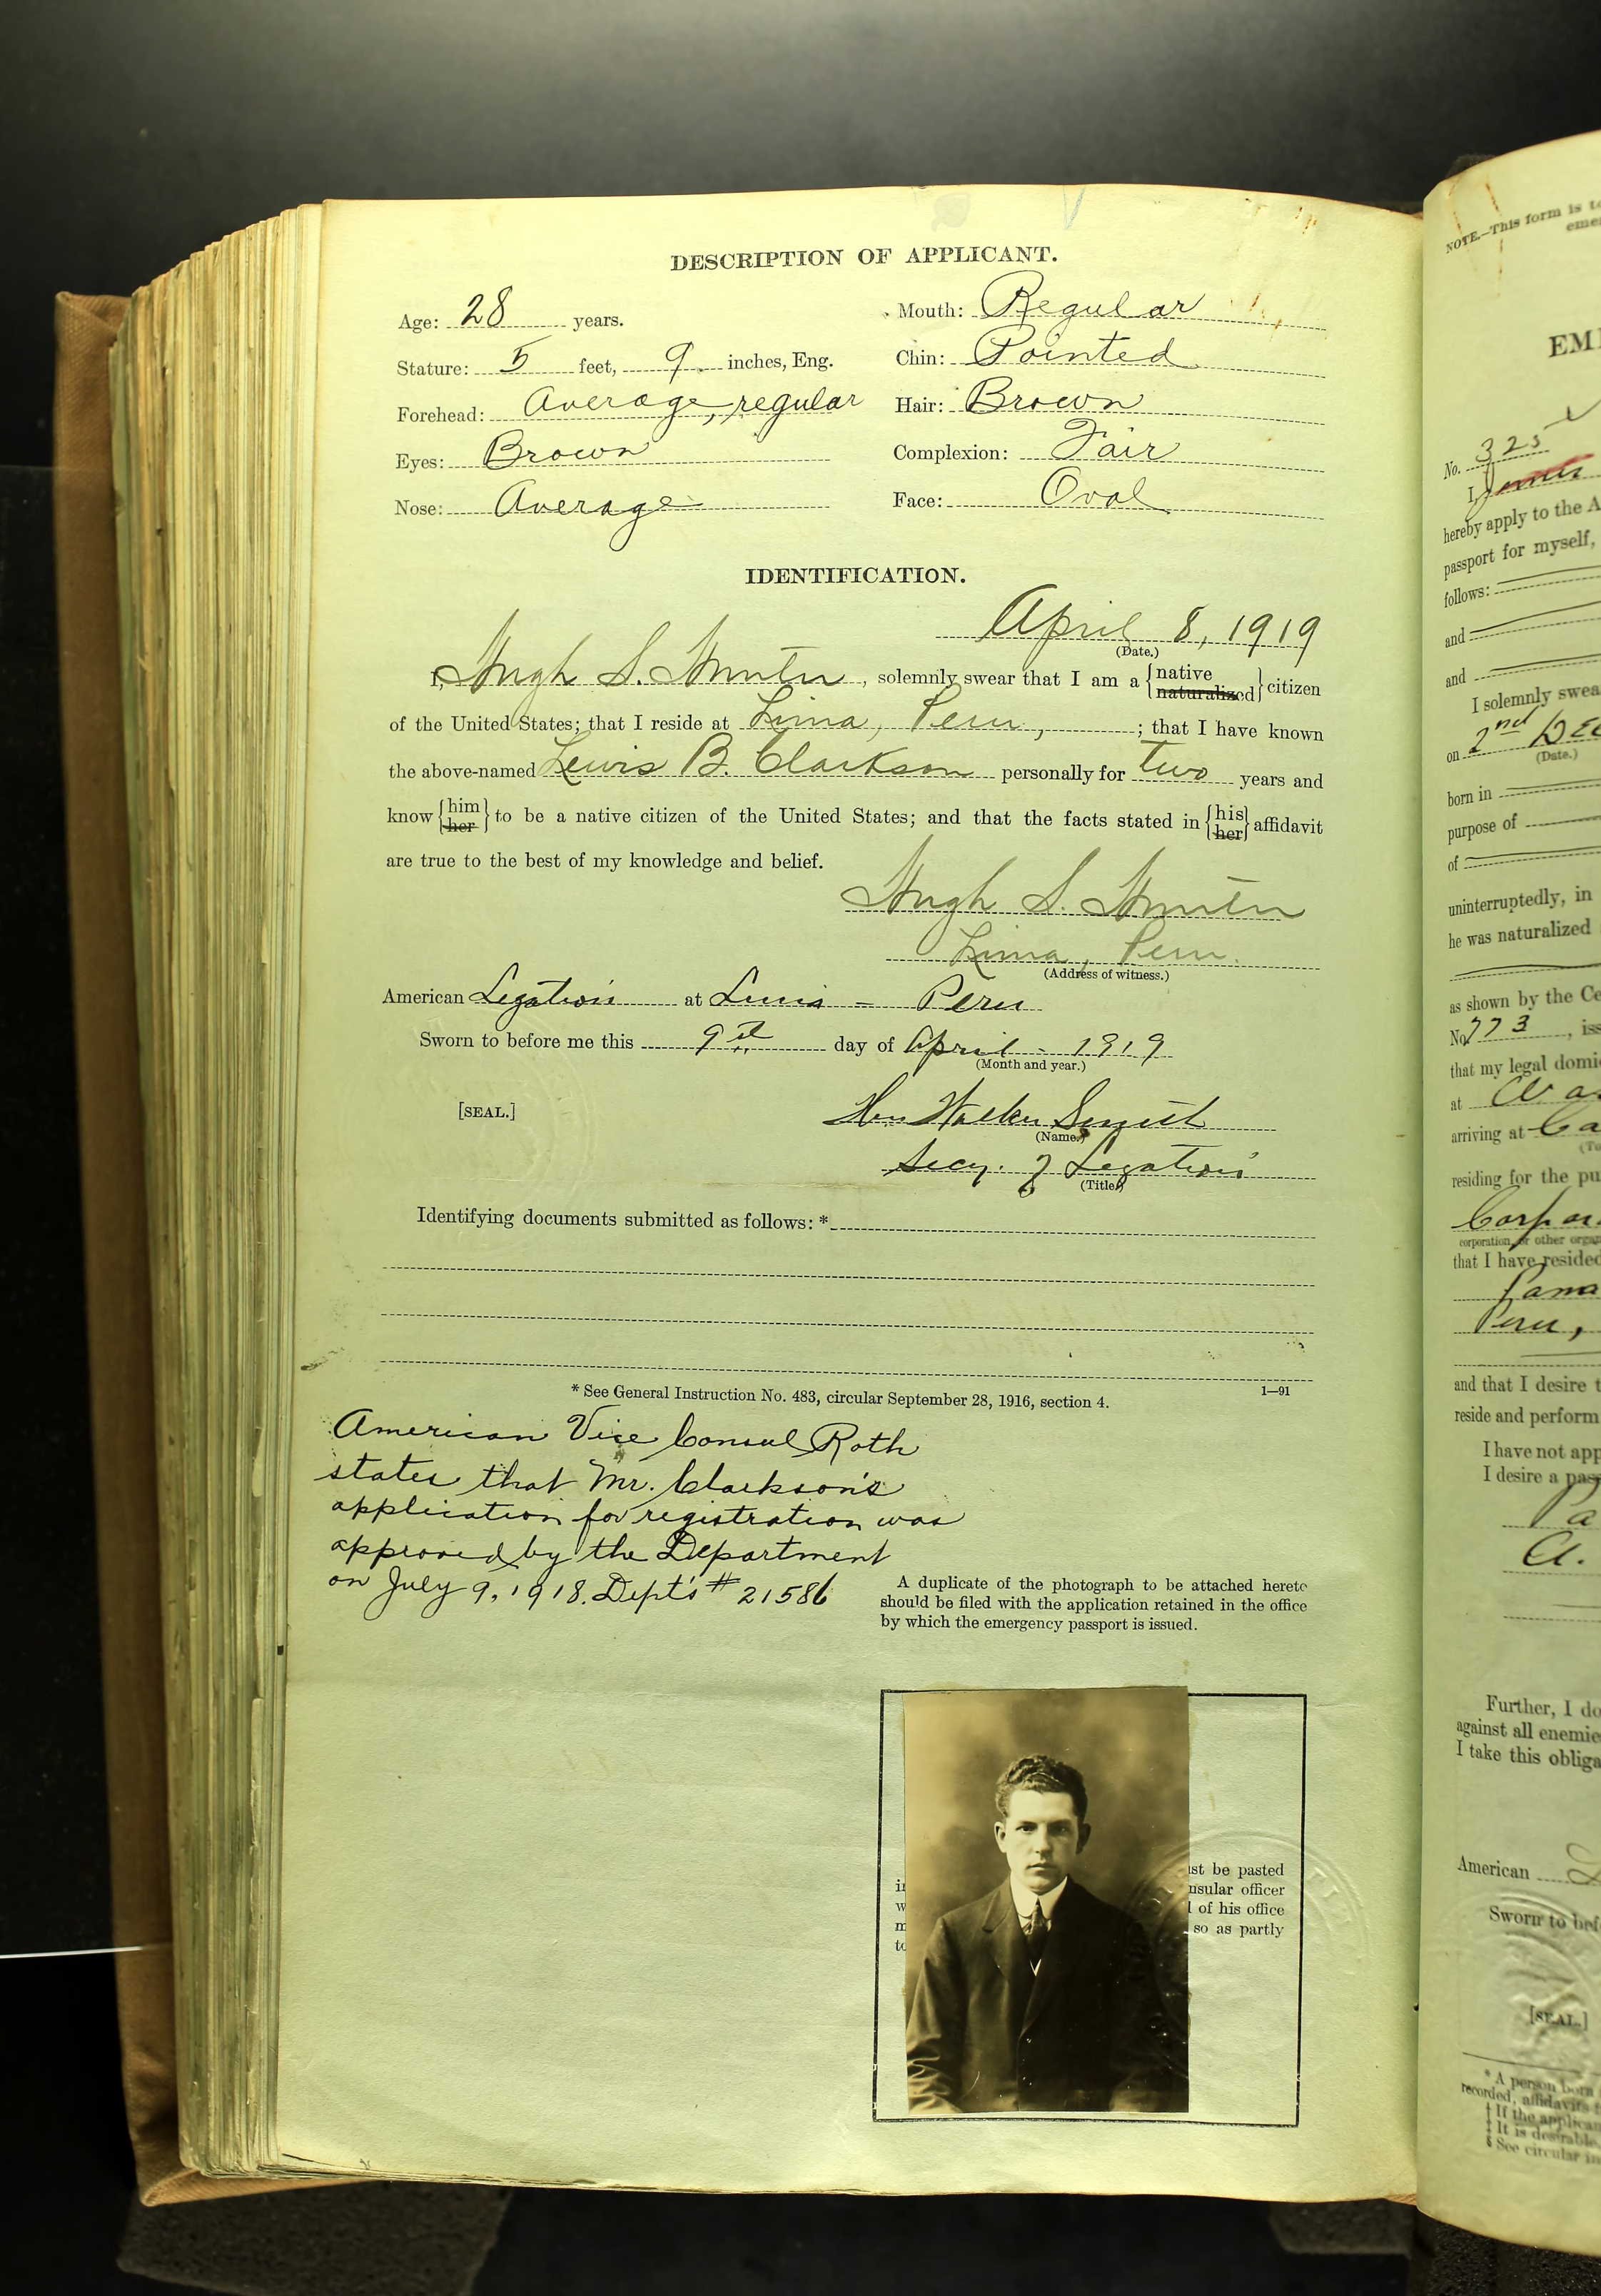 DESCRIPTION OF APPLICANT.
Age: 28 years. Mouth: Regular
Stature: 5 feet, 9 inches, Eng. Chin: Pointed
Forehead: Average, regular Hair: Brown
Eyes: Brown Complexion: Fair
Nose: Average Face: Oval
IDENTIFICATION.
April 8, 1919
(Date.)
I, Hugh S. , solemnly swear that I am a {native naturalized} citizen
of the United States; that I reside at Lima, Peru, ; that I have known
the above-named Lewis B. Clarkson personally for two years and
know {him her} to be a native citizen of the United States; and that the facts stated in {his her} affidavit
are true to the best of my knowledge and belief.
Hugh S.
Lima, Peru.
(Address of witness.)
American Legation at Lima - Peru
Sworn to before me this 9th day of April - 1919
(Month and year.)
[SEAL.]
Walker Smith
(Name.)
Secy. of Legation
(Title.)
Identifying documents submitted as follows: *
* See General Instruction No. 483, circular September 28, 1916, section 4.
1—91
American Vice Consul Roth
states that Mr. Clarkson's
application for registration was
approved by the Department
on July 9, 1918. Dept's # 21586
A duplicate of the photograph to be attached hereto
should be filed with the application retained in the office
by which the emergency passport is issued.
be pasted
officer
of his office
so as partly
NOTE.—This form is
No. 325
I,
hereby apply to the
passport for myself,
follows:
and
and
I solemnly
on 2nd
(Date.)
born in
purpose of
of
uninterruptedly, in
he was naturalized
as shown by the
No. 773
that my legal
at
arriving at
residing for the
corporation, or other
that I have resided
Peru,
and that I desire
reside and perform
I have not
I desire a
Further, I do
against all
I take this
American
Sworn to
[SEAL.]
* A person born
recorded, affidavits
† If the
‡ It is desirable
§ See circular